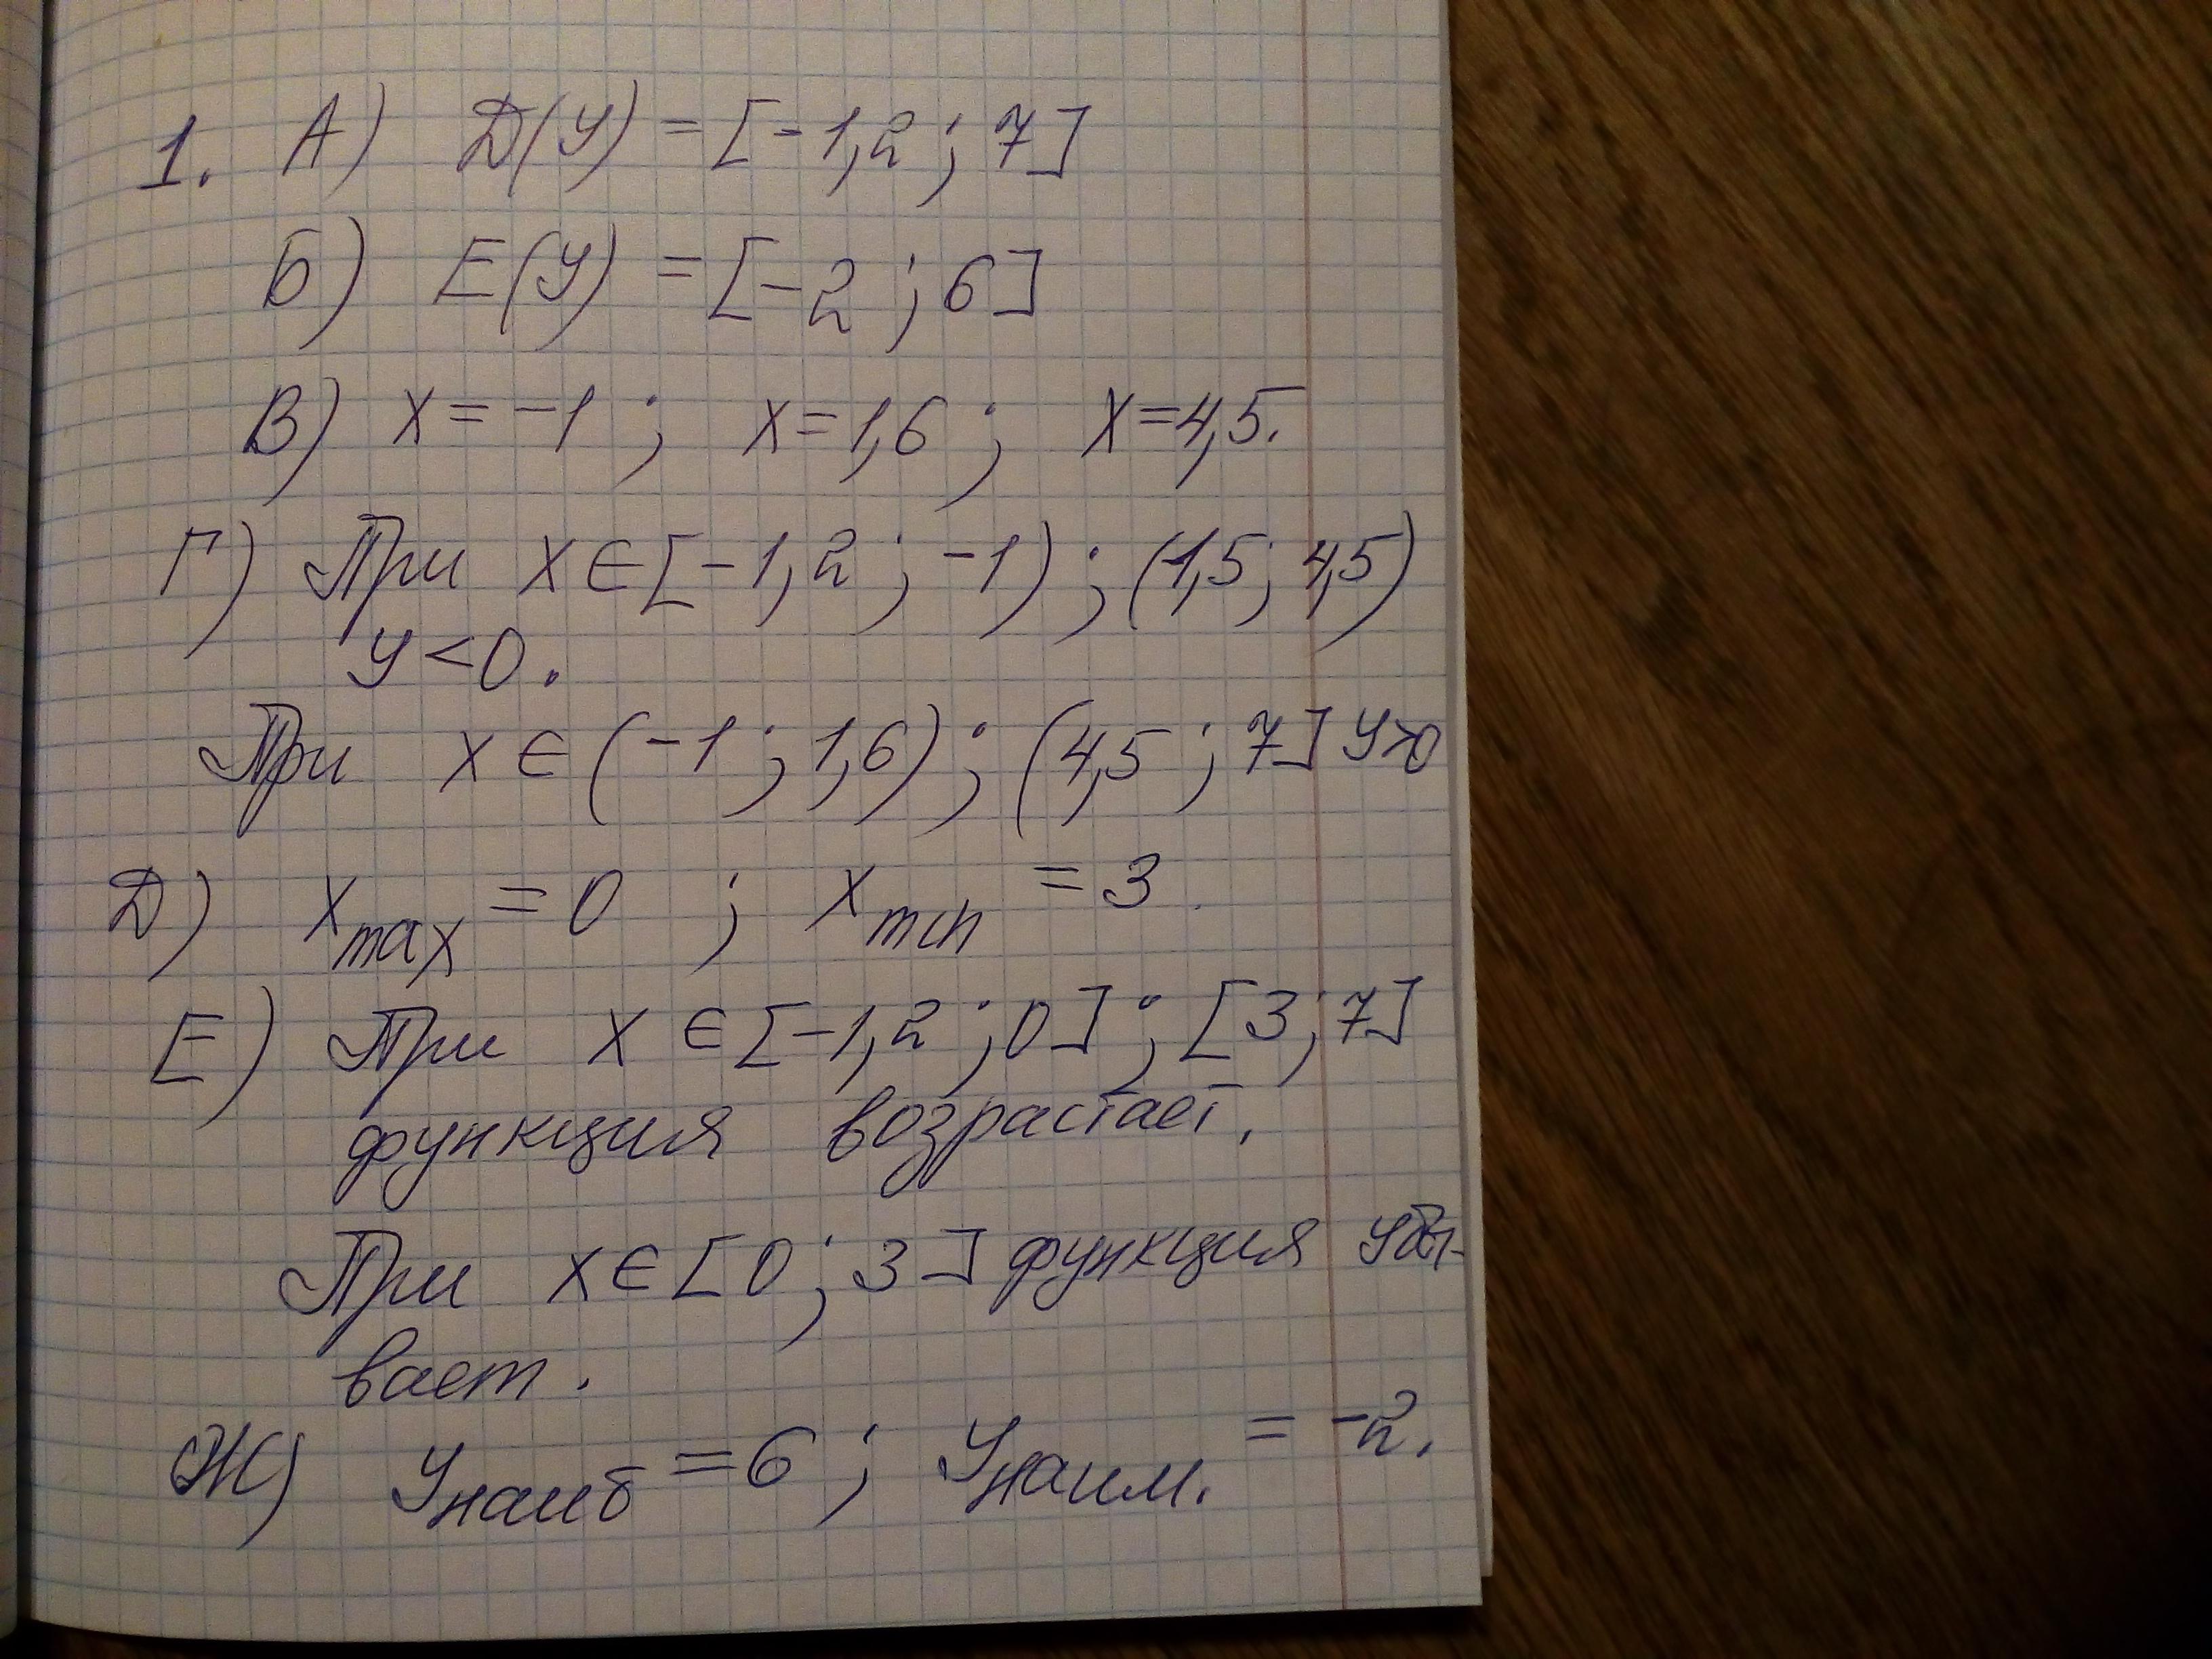 1. А) D(y) = [-1,2 ; 7]
Б) E(y) = [-2 ; 6]
В) x = -1 ; x = 1,6 ; x = 4,5.
Г) При x ∈ [-1,2 ; -1) ; (1,5 ; 4,5)
y < 0.
При x ∈ (-1 ; 1,6) ; (4,5 ; 7] y>0
Д) x max = 0 ; x min = 3.
Е) При x ∈ [-1,2 ; 0] ; [3 ; 7]
функция возрастает.
При x ∈ [0 ; 3] функция убы-
вает.
Ж) y наиб = 6 ; y наим. = -2.